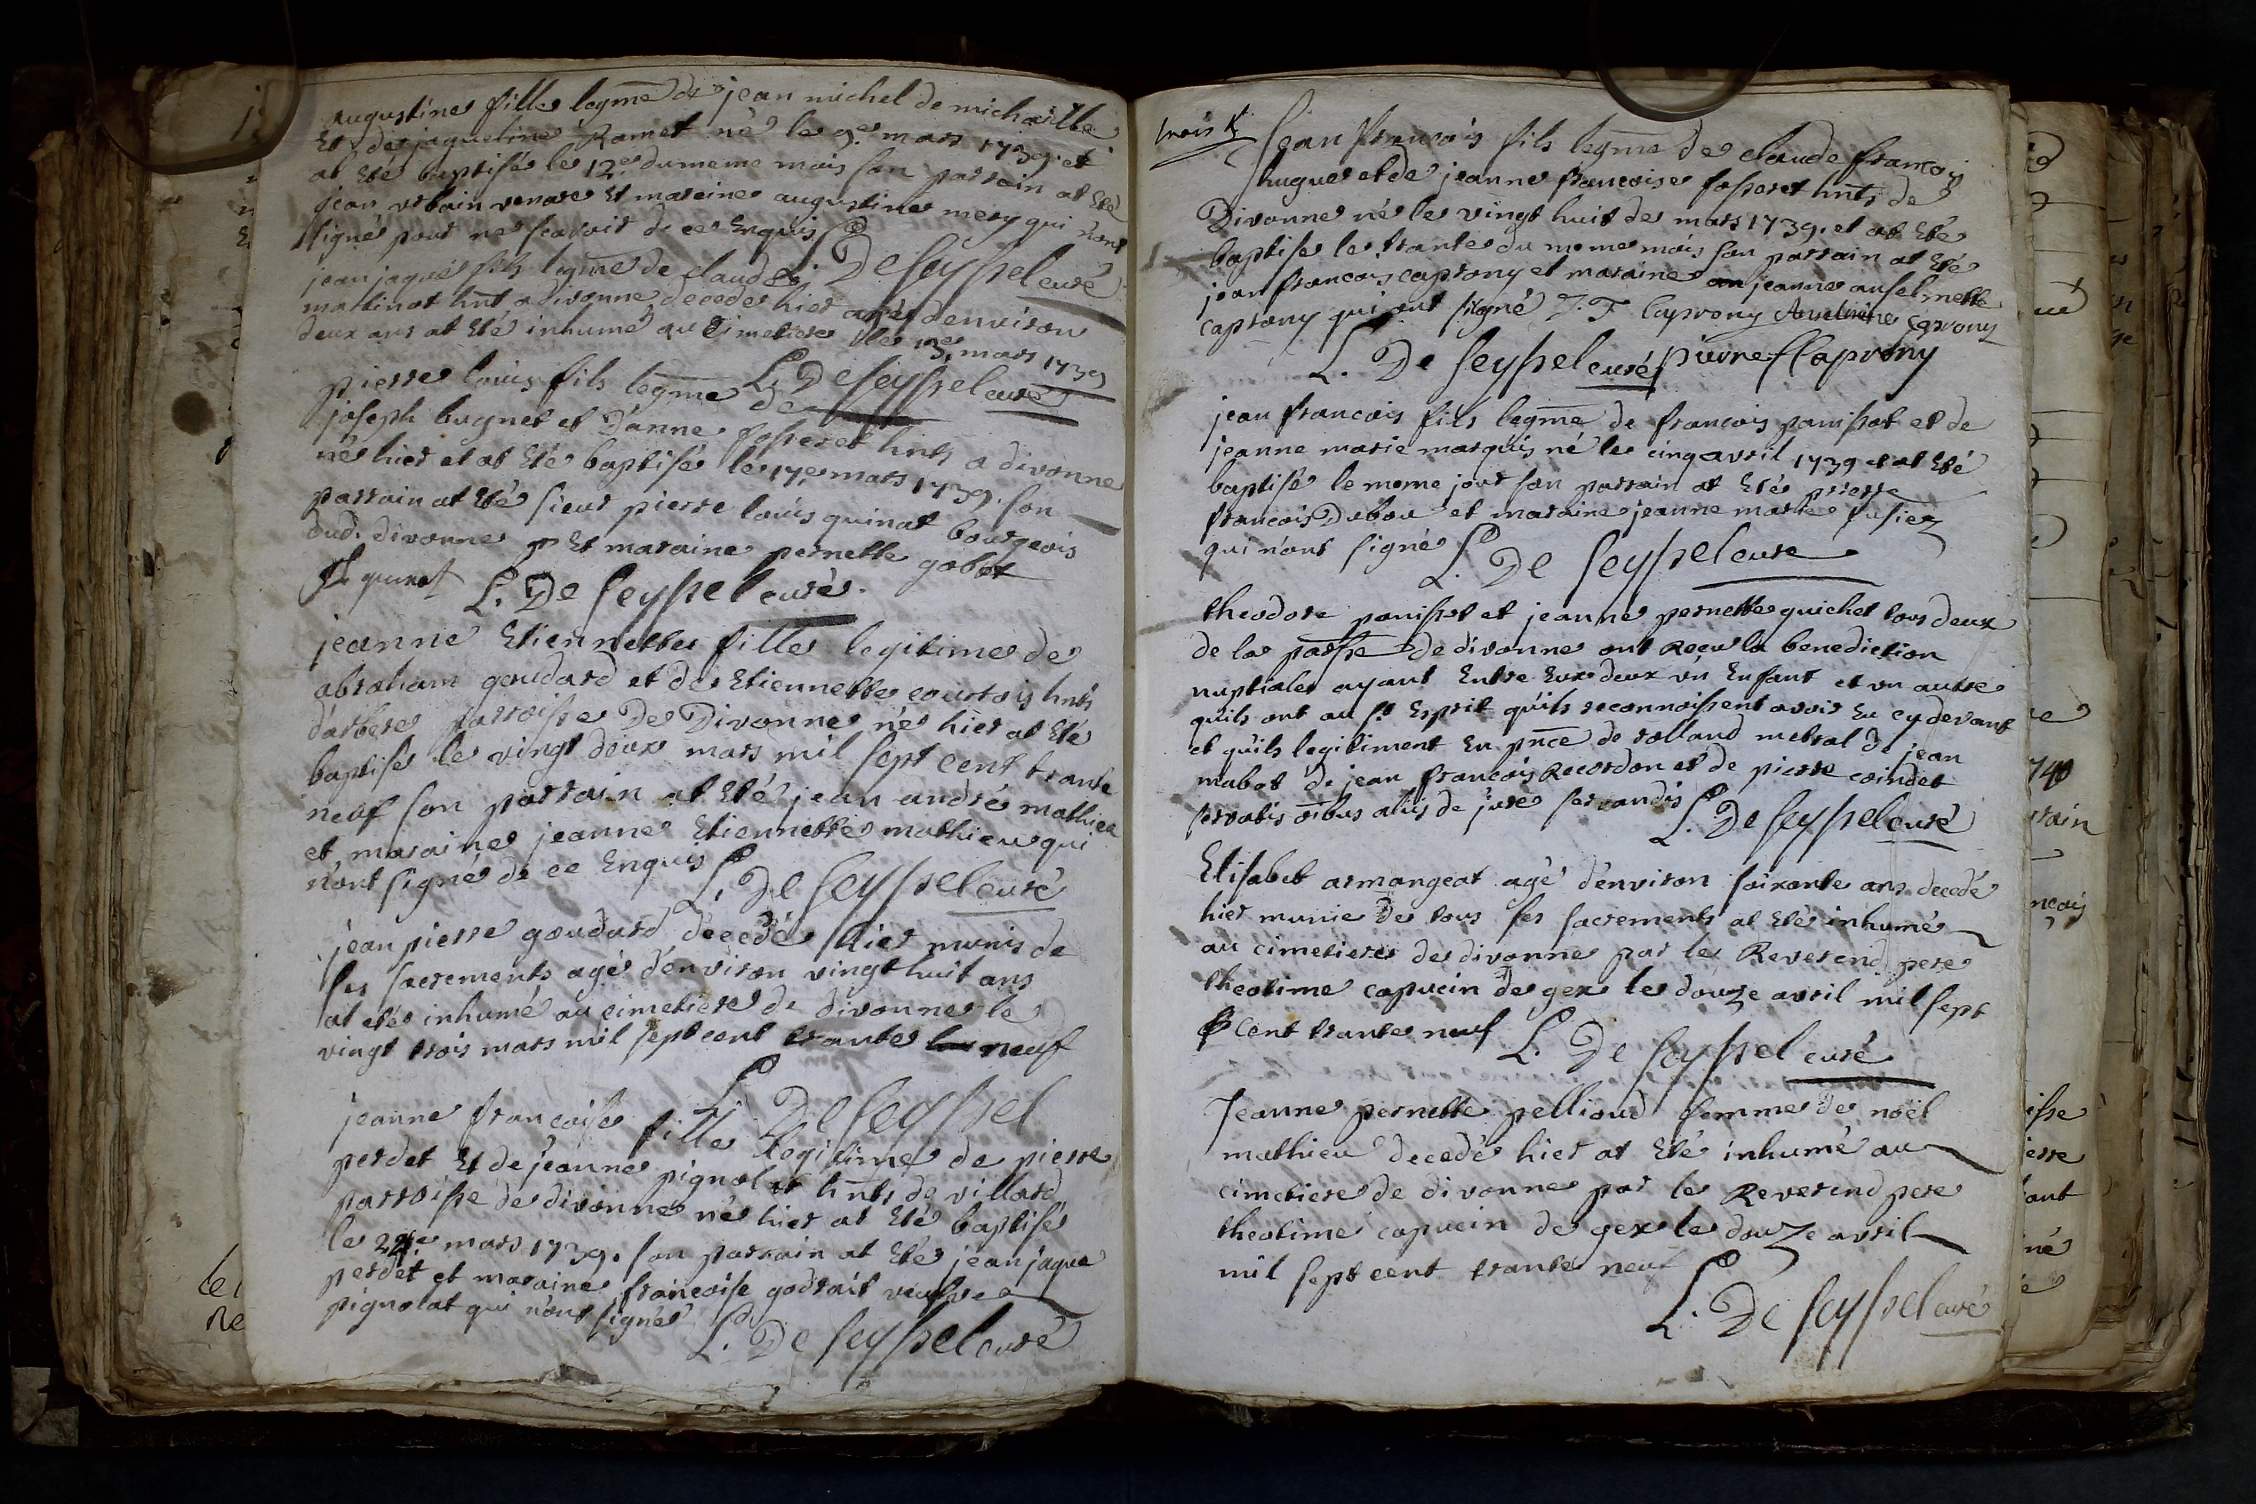 augustine fille legme de jean michel de michaille
Et de jaqueline Ramet né le 9e mars 1739. et
at Eté baptisé le 12e du meme mois son parrain at Eté
jean urbain venare Et mareine augustine mery qui n'ont
signé pour ne scavoir de ce Enquis
L. De Seyssel curé
jean jaque fils legme de claude
martinat hnt a divonne decede hier agé denviron
deux ans at Eté inhumé au Cimetiere le 13e mars 1739
L. De Seyssel curé
pierre louis fils legme de
joseph bugnet et d'anne fosseret hnts a divonne
né hier et at Eté baptisé le 17e mars 1739. son
parrain at Eté sieur pierre louis quinat bourgeois
dud. divonne Et maraine pernette gobet
quinat L. De Seyssel curé.
jeanne Etiennette fille legitime de
abraham goudard et de Etiennette courtois hnts
d'arbere parroisse De Divonne né hier at Eté
baptisé le vingt deux mars mil sept cent trante
neuf son parrain at Eté jean andré mathieu
et maraine jeanne Etiennette mathieu qui
n'ont signé de ce Enquis
L. De Seyssel curé
jean pierre goudard decedé hier munis de
ses sacrements agé d'environ vingt huit ans
at eté inhumé au cimetiere de divonne le
vingt trois mars mil sept cent trante neuf
L. De Seyssel
jeanne francoise fille legitime de pierre
perdet Et de jeanne pignolet hnts de villard
parroisse de divonne né hier at Eté baptisé
le 24e mars 1739. son parrain at Eté jean jaque
perdet et maraine francoise godrait veufve
pignolat qui n'ont signé
L. De Seyssel curé
trois
Jean Francois fils legme de claude francois
hugue et de jeanne francoise fosseret hnts de
Divonne né le vingt huit de mars 1739. et at Eté
baptise le trante du meme mois son parrain at Eté
jean francois caprony et maraine jeanne anselmette
caprony qui ont signé J. F. Caprony Anselméne Caprony
L. De Seyssel curé pierre f Caprony
jean francois fils legme de francois panissat et de
jeanne marie marquis né le cinq avril 1739 et at Eté
baptisé le meme jour son parrain at Eté pierre
francois Dubou et maraine jeanne marie fusier
qui n'ont signé L. De Seyssel curé
theodore panisset et jeanne pernette guichet tous deux
de la parsse de divonne ont Receu la benediction
nuptiale ayant Entre Eux deux un Enfant et un autre
quils ont au st Esprit qu'ils reconnoissent avoir Eu cy devant
et qu'ils legitiment En pnce de rolland metral de jean
mabot de jean francois Recordon et de pierre coindet
servatis oibus aliis de jure servandis
L. De Seyssel curé
Elisabet armangeat agé d'environ soixante ans decedé
hier munie de tous ses sacrements at Eté inhumé
au cimetiere de divonne par le Reverend pere
theotime capucin de gex le douze avril mil sept
cent trante neuf L. De Seyssel curé
Jeanne pernette pelliond femme de noël
mathieu decedé hier at Eté inhumé au
cimetiere de divonne par le Reverend pere
theotime capucin de gex le douze avril
mil sept cent trante neuf
L. De Seyssel curé